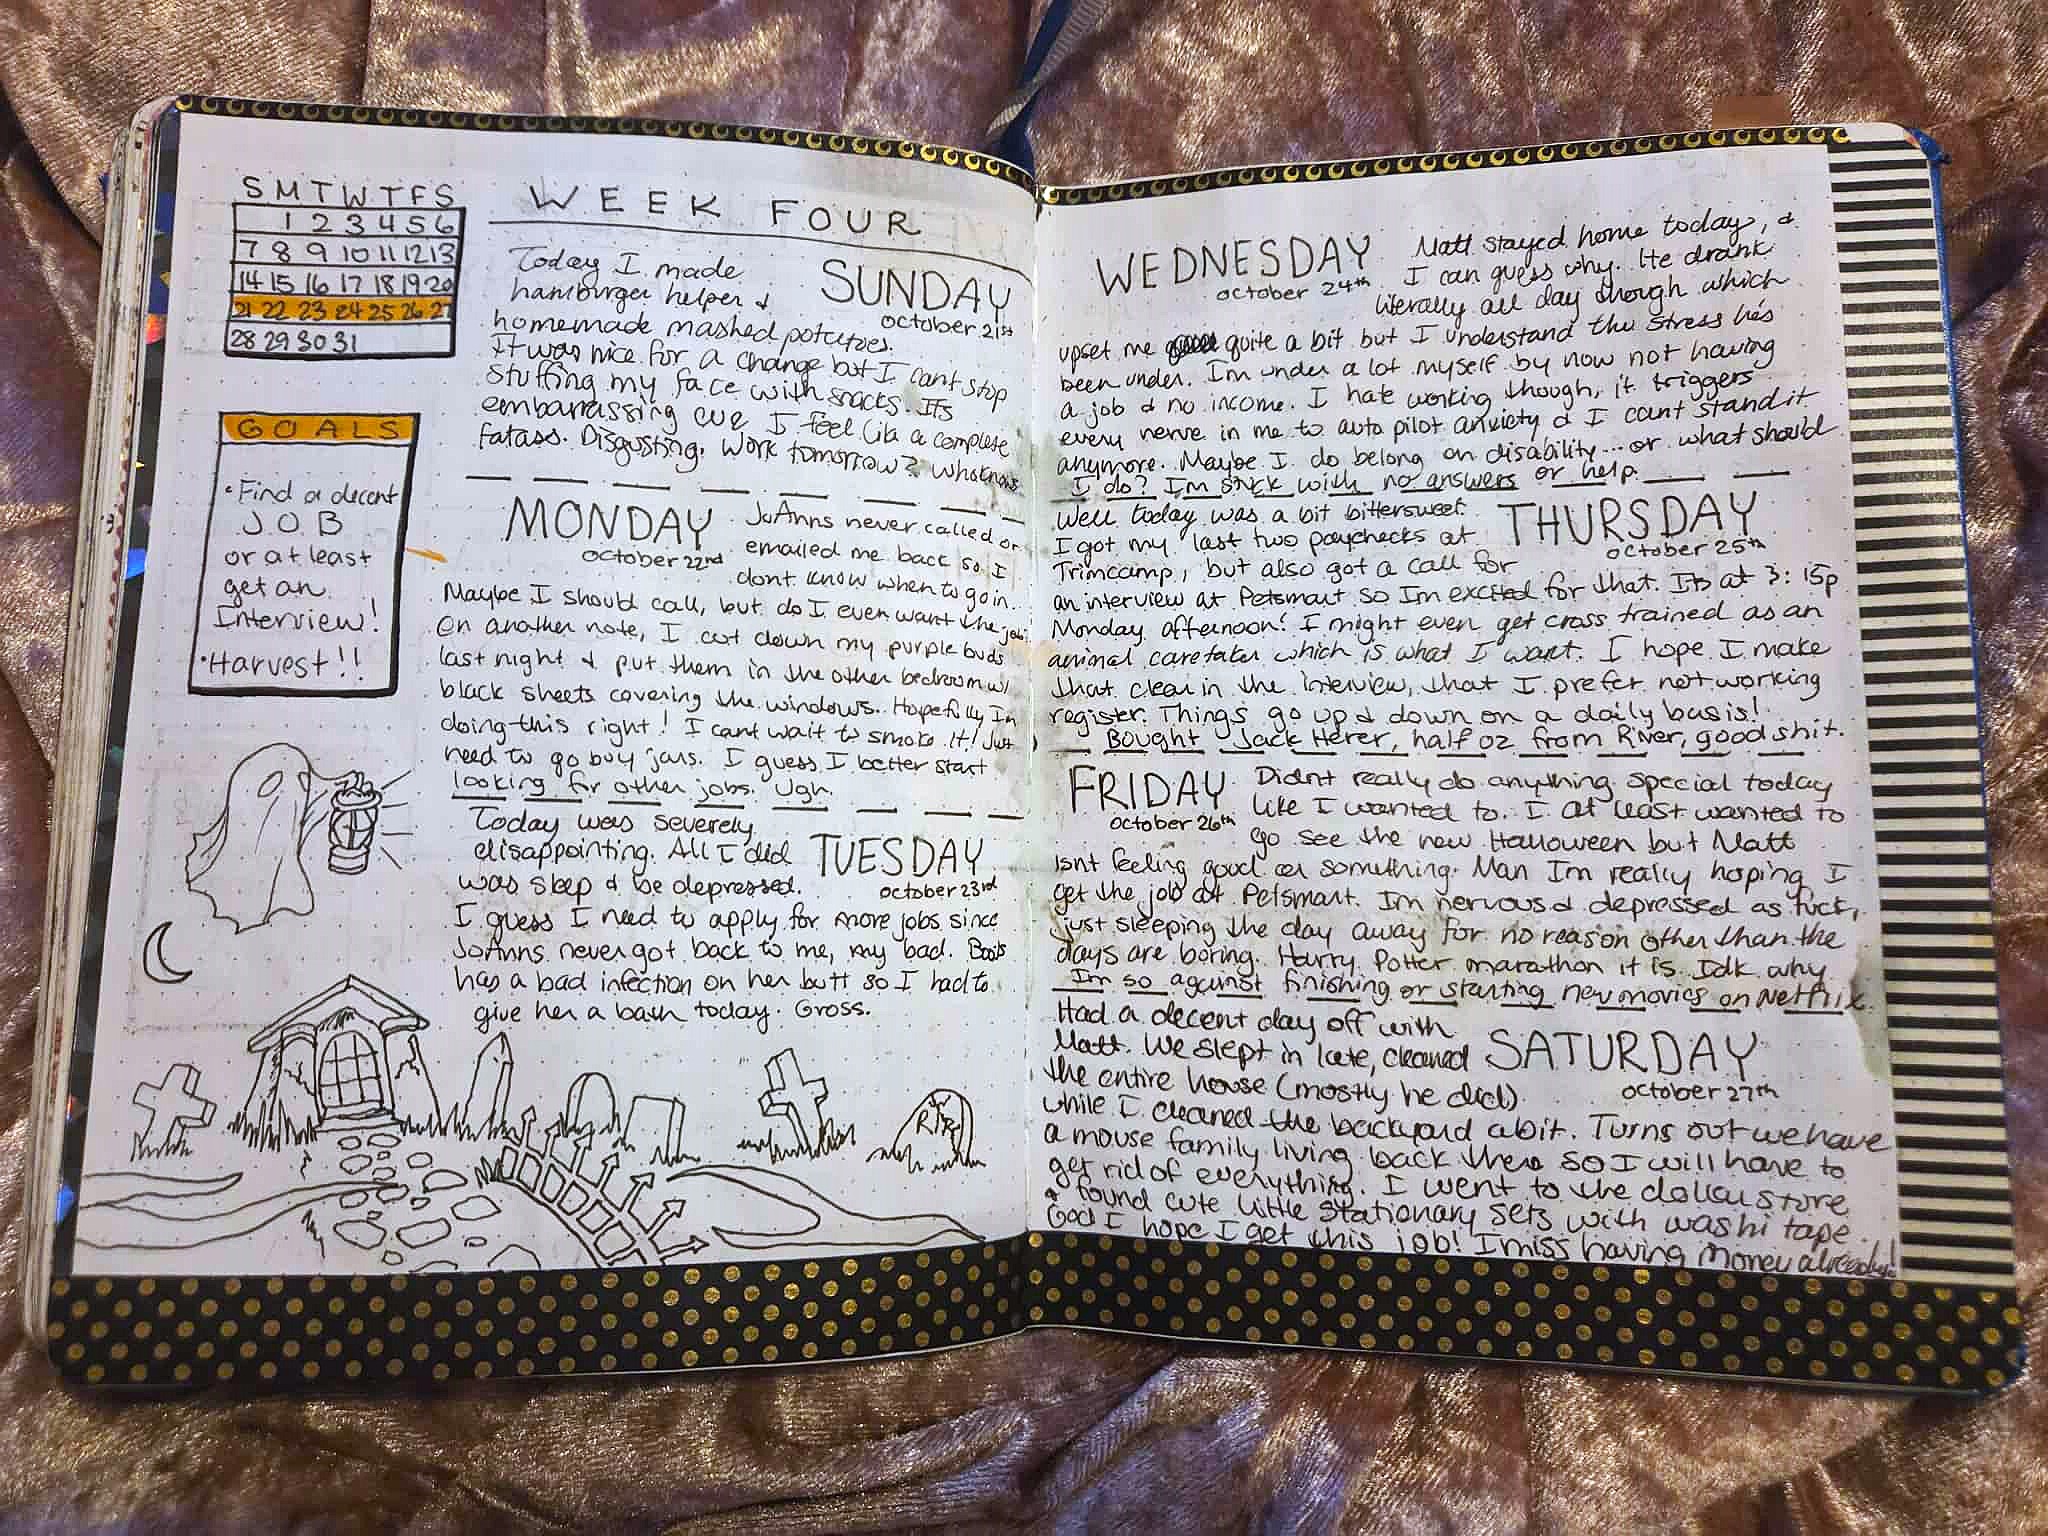 S M T W T F S
1 2 3 4 5 6
7 8 9 10 11 12 13
14 15 16 17 18 19 20
21 22 23 24 25 26 27
28 29 30 31
GOALS
• Find a decent
J.O.B
or at least
get an
Interview!
• Harvest!!
WEEK FOUR
SUNDAY
october 21st
Today I made
hamburger helper &
homemade mashed potatoes.
It was nice for a change but I cant stop
stuffing my face with snacks. Its
embarrassing cuz I feel like a complete
fatass. Disgusting. Work tomorrow? who knows
MONDAY
october 22nd
JoAnns never called or
emailed me back so I
dont know when to go in.
Maybe I should call, but do I even want the job
On another note, I cut down my purple buds
last night & put them in the other bedroom w/
black sheets covering the windows. Hopefully Im
doing this right! I cant wait to smoke it! Just
need to go buy jars. I guess I better start
looking for other jobs. Ugh.
TUESDAY
october 23rd
Today was severely
disappointing. All I did
was sleep & be depressed.
I guess I need to apply for more jobs since
JoAnns never got back to me, my bad. Boots
has a bad infection on her butt so I had to
give her a bath today. Gross.
RIP
WEDNESDAY
october 24th
Matt stayed home today, &
I can guess why. He drank
literally all day though which
upset me quite a bit but I understand the stress he's
been under. I'm under a lot myself by now not having
a job & no income. I hate working though, it triggers
every nerve in me to auto pilot anxiety & I cant stand it
anymore. Maybe I do belong on disability... or what should
I do? I'm stuck with no answers or help.
THURSDAY
october 25th
Well today was a bit bittersweet.
I got my last two paychecks at
Trimcamp, but also got a call for
an interview at Petsmart so Im excited for that. Its at 3:15p
Monday afternoon! I might even get cross trained as an
animal caretaker which is what I want. I hope I make
that clear in the interview, that I prefer not working
register. Things go up & down on a daily basis!
Bought Jack Herer, half oz from River, good shit.
FRIDAY
october 26th
Didnt really do anything special today
like I wanted to. I at least wanted to
go see the new Halloween but Matt
isnt feeling good or something. Man Im really hoping I
get the job at Petsmart. Im nervous & depressed as fuck,
just sleeping the day away for no reason other than the
days are boring. Harry Potter marathon it is. Idk why
Im so against finishing or starting new movies on Netflix.
SATURDAY
october 27th
Had a decent day off with
Matt. We slept in late, cleaned
the entire house (mostly he did)
while I cleaned the backyard a bit. Turns out we have
a mouse family living back there so I will have to
get rid of everything. I went to the dollar store
& found cute little stationary sets with washi tape.
God I hope I get this job! I miss having money already!